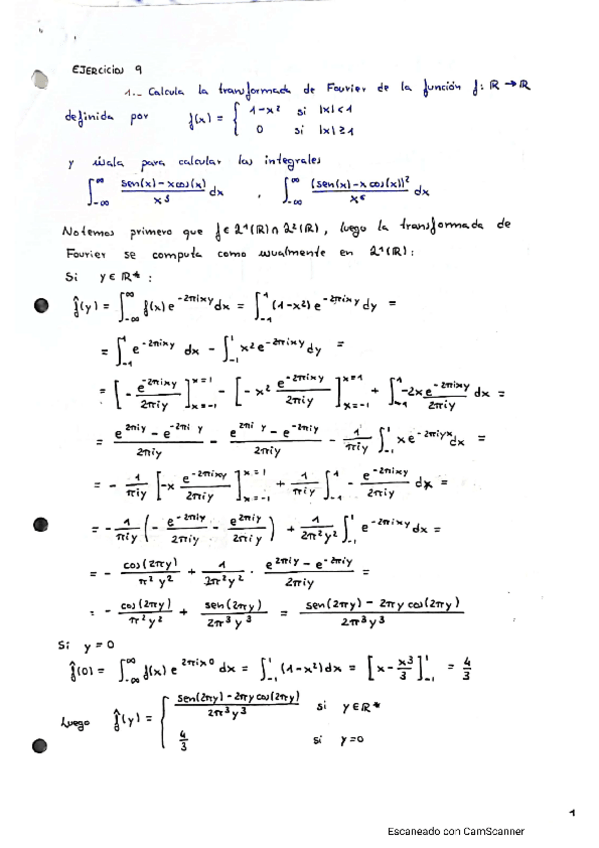 EJERCICIOS 9
1.- Calcula la transformada de Fourier de la función f: ℝ → ℝ
definida por f(x) = { 1-x² si |x|<1
0 si |x|≥1
y úsala para calcular las integrales
∫_{-∞}^{∞} (sen(x)-xcos(x))/x³ dx , ∫_{-∞}^{∞} (sen(x)-x cos(x))²/x⁶ dx
Notemos primero que f∈ℒ¹(ℝ)∩ℒ²(ℝ), luego la transformada de
Fourier se computa como usualmente en ℒ¹(ℝ):
Si y∈ℝ* :
f̂(y) = ∫_{-∞}^{∞} f(x) e^{-2πixy} dx = ∫_{-1}^{1} (1-x²) e^{-2πixy} dy =
= ∫_{-1}^{1} e^{-2πixy} dx - ∫_{-1}^{1} x² e^{-2πixy} dy =
= [- e^{-2πixy}/2πiy]_{x=-1}^{x=1} - [-x² e^{-2πixy}/2πiy]_{x=-1}^{x=1} + ∫_{-1}^{1} -2x e^{-2πixy}/2πiy dx =
= (e^{2πiy} - e^{-2πiy})/2πiy - (e^{2πiy} - e^{-2πiy})/2πiy - 1/πiy ∫_{-1}^{1} x e^{-2πiyx} dx =
= - 1/πiy [-x e^{-2πixy}/2πiy]_{x=-1}^{x=1} + 1/πiy ∫_{-1}^{1} - e^{-2πixy}/2πiy dx =
= - 1/πiy (- e^{-2πiy}/2πiy - e^{2πiy}/2πiy) + 1/2π²y² ∫_{-1}^{1} e^{-2πixy} dx =
= - cos(2πy)/π²y² + 1/2π²y² · (e^{2πiy} - e^{-2πiy})/2πiy =
= - cos(2πy)/π²y² + sen(2πy)/2π³y³ = (sen(2πy) - 2πy cos(2πy))/2π³y³
Si y=0
f̂(0) = ∫_{-∞}^{∞} f(x) e^{2πix0} dx = ∫_{-1}^{1} (1-x²) dx = [x - x³/3]_{-1}^{1} = 4/3
Luego f̂(y) = { (sen(2πy) - 2πy cos(2πy))/2π³y³ si y∈ℝ*
4/3 si y=0
1
Escaneado con CamScanner